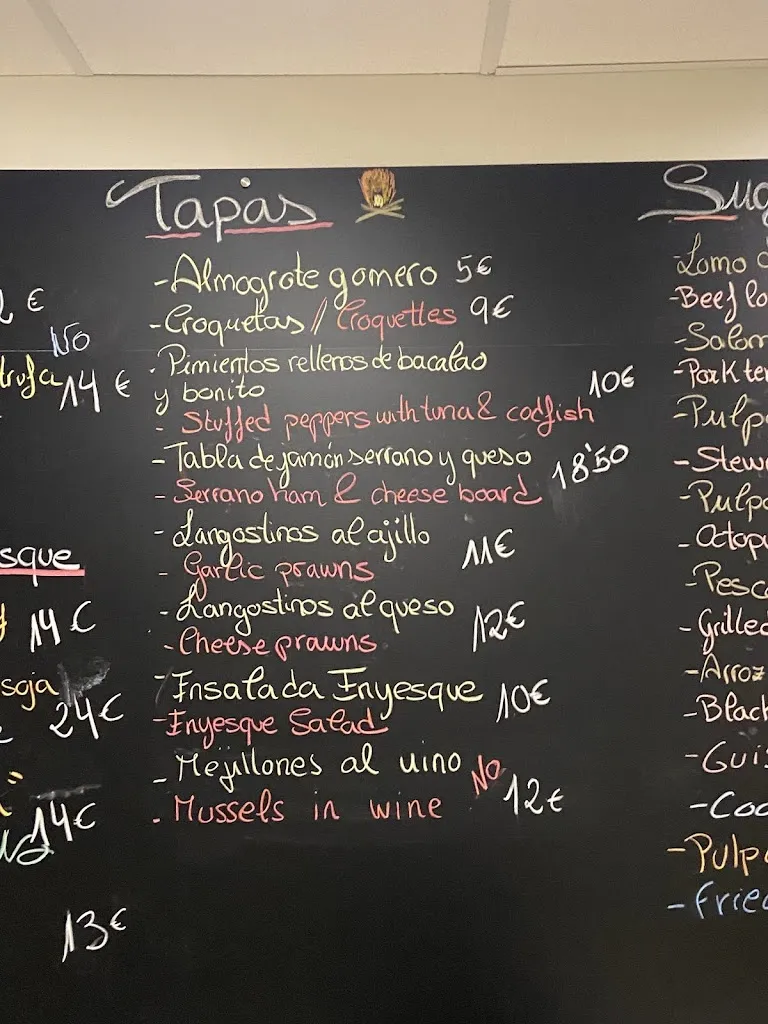 Tapas
-Almogrote gomero 5€
-Croquetas // Croquettes 9€
-Pimientos rellenos de bacalao
y bonito
- Stuffed peppers with tuna & codfish 10€
-Tabla de jamón serrano y queso
- Serrano ham & cheese board 18'50
-Langostinos al ajillo
- Garlic prawns 11€
-Langostinos al queso
-Cheese prawns 12€
-Ensalada Enyesque
-Enyesque Salad 10€
-Mejillones al vino NO
- Mussels in wine 12€
€
NO
trufa 14€
sque
14€
soja
24€
14€
13€
Sug
-Lomo
-Beef lo
-Salom
-Pork ten
-Pulpo
-Stew
-Pulpo
-Octopu
-Pesc
-Grilled
-Arroz
-Black
-Guis
-Coo
-Pulp
-Fried